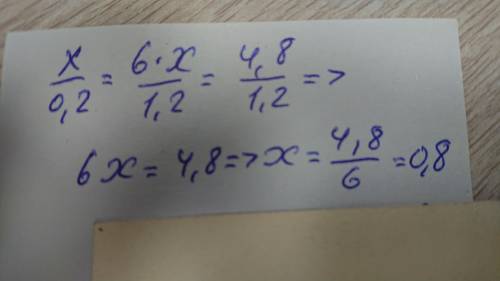 x/0,2 = 6·x/1,2 = 4,8/1,2 =>
6x = 4,8 => x = 4,8/6 = 0,8